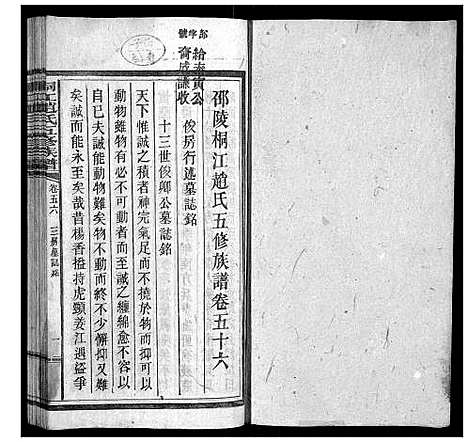 部字號
給春寅公
裔成謙收
邵陵桐江趙氏五修族譜卷五十六
俊房行述墓誌銘
十三世俊卿公墓誌銘
天下惟誠之積者神完氣足而不撓於物而抑可以
動物雖物有必不可動者而至誠之纏綿愈不容
自已夫誠能動物難矣動物而終不少懈抑又難
矣誠而能永至矣哉昔楊香搤持虎頸姜江遇盜爭
桐江趙氏五修族譜
卷五十六
一